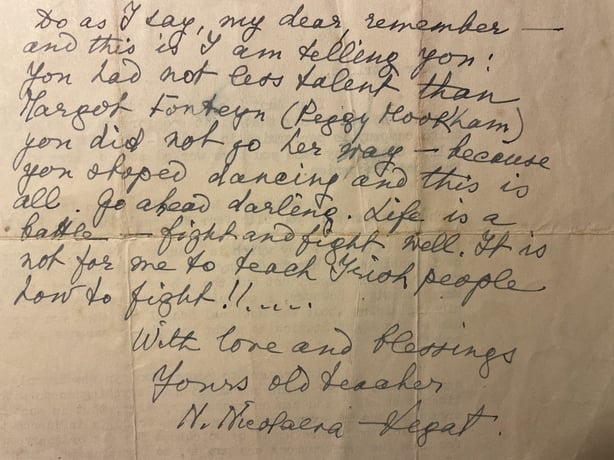 Do as I say, my dear, remember —
and this is I am telling you:
You had not less talent than
Margot Fonteyn (Peggy Hookham)
you did not go her way — because
you stoped dancing and this is
all. Go ahead darling. Life is a
battle — fight and fight well. It is
not for me to teach Irish people
how to fight!!.....
With love and blessings
Yours old teacher
N. Nicolaeva - Legat.